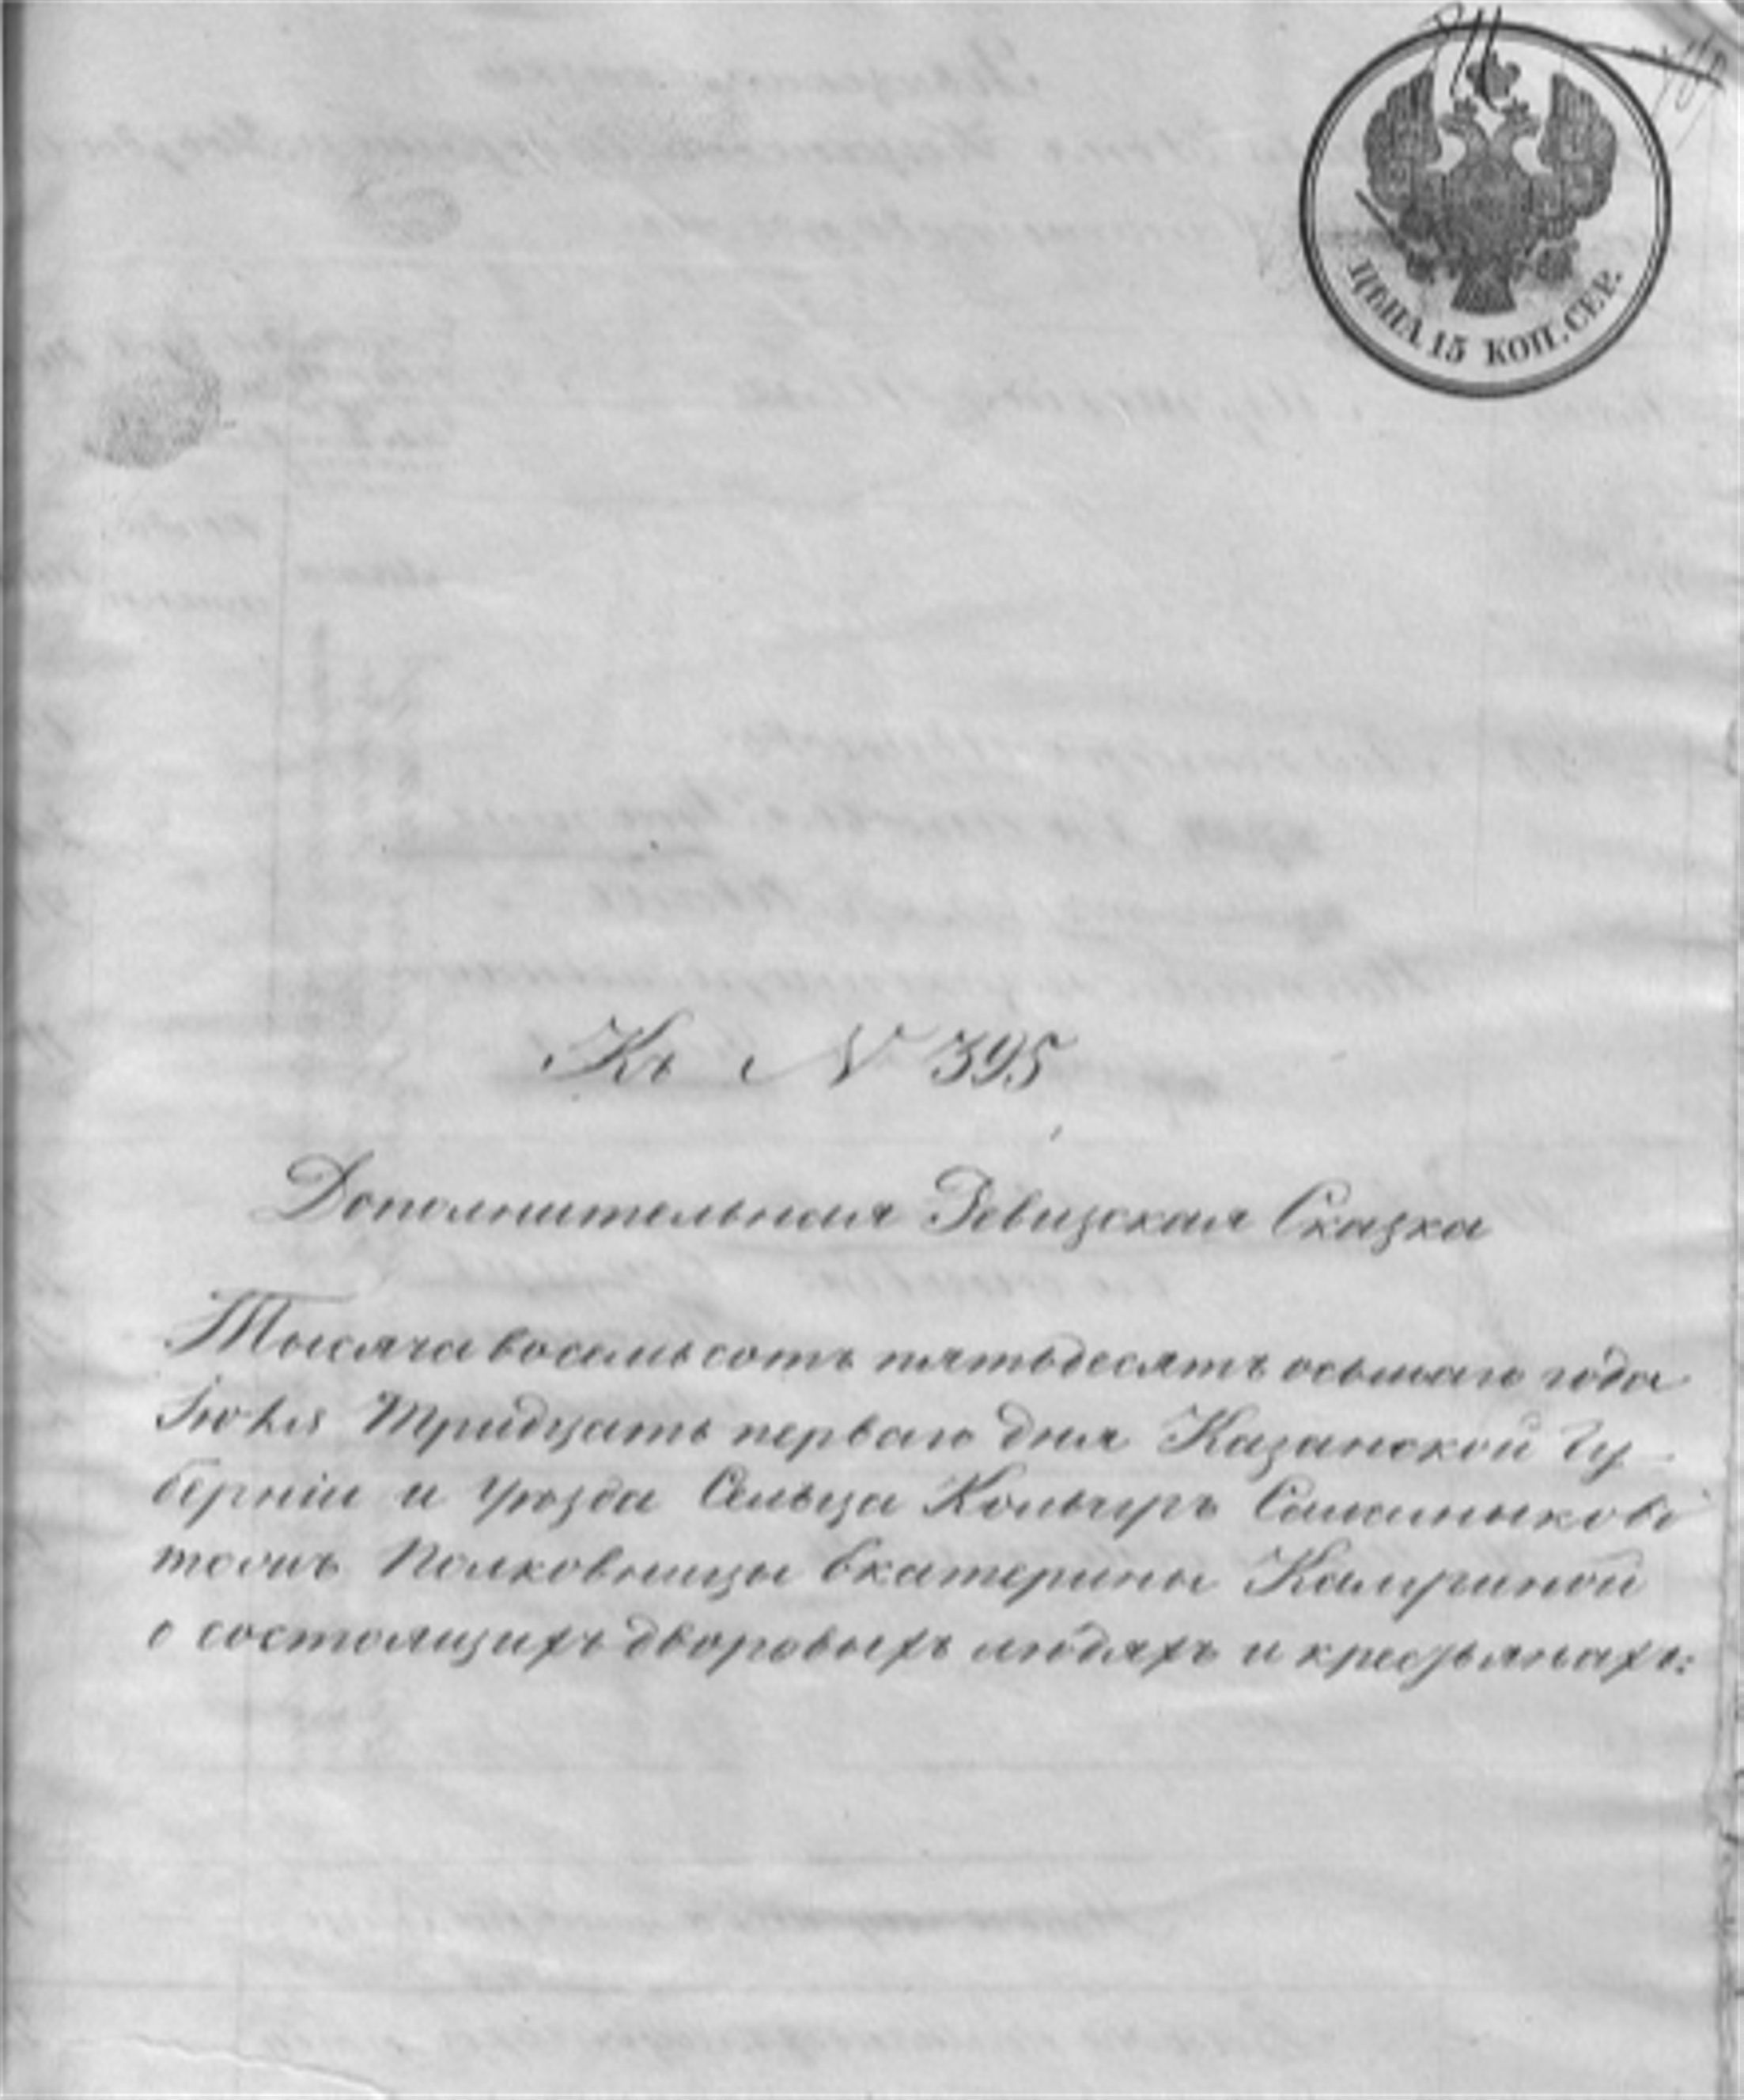 811
ЦѢНА 15 КОП. СЕР.
Къ № 395
Дополнительная Ревизская Сказка
Тысяча восемьсотъ пятьдесятъ осьмаго года
Іюля Тридцать перваго дня Казанской Гу-
берніи и уѣзда Сельца
тожъ Полковницы Екатерины
о состоящихъ дворовыхъ людяхъ и крестьянахъ: